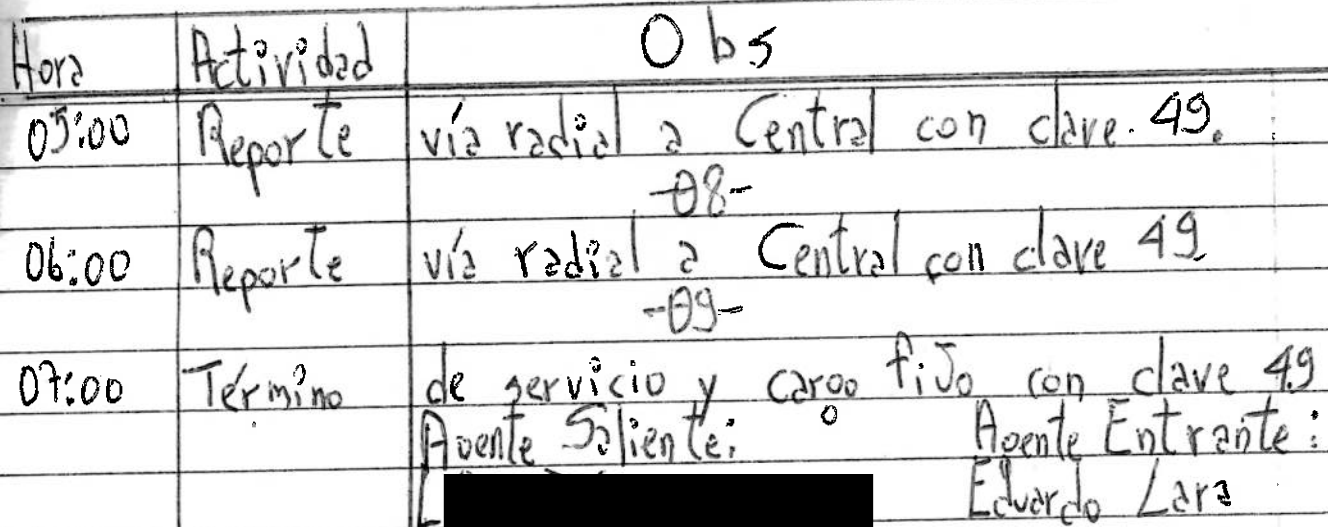 Hora Actividad Obs
05:00 Reporte vía radial a Central con clave. 49.
-08-
06:00 Reporte vía radial a Central con clave 49
-09-
07:00 Término de servicio y cargo fijo con clave 49
Agente Saliente: Agente Entrante:
Eduardo Lara